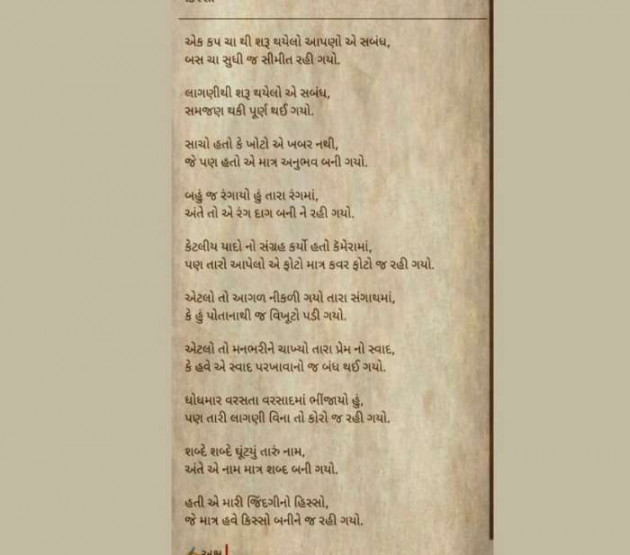 એક કપ ચા થી શરૂ થયેલો આપણો એ સબંધ,
બસ ચા સુધી જ સીમીત રહી ગયો.
લાગણીથી શરૂ થયેલો એ સબંધ,
સમજણ થકી પૂર્ણ થઈ ગયો.
સાચો હતો કે ખોટો એ ખબર નથી,
જે પણ હતો એ માત્ર અનુભવ બની ગયો.
બહું જ રંગાયો હું તારા રંગમાં,
અંતે તો એ રંગ દાગ બની ને રહી ગયો.
કેટલીય યાદો નો સંગ્રહ કર્યો હતો કૅમેરામાં,
પણ તારો આપેલો એ ફોટો માત્ર કવર ફોટો જ રહી ગયો.
એટલો તો આગળ નીકળી ગયો તારા સંગાથમાં,
કે હું પોતાનાથી જ વિખૂટો પડી ગયો.
એટલો તો મનભરીને ચાખ્યો તારા પ્રેમ નો સ્વાદ,
કે હવે એ સ્વાદ પરખાવાનો જ બંધ થઈ ગયો.
ધોધમાર વરસતા વરસાદમાં ભીંજાયો હું,
પણ તારી લાગણી વિના તો કોરો જ રહી ગયો.
શબ્દે શબ્દે ઘૂંટયું તારું નામ,
અંતે એ નામ માત્ર શબ્દ બની ગયો.
હતી એ મારી જિંદગીનો હિસ્સો,
જે માત્ર હવે કિસ્સો બનીને જ રહી ગયો.